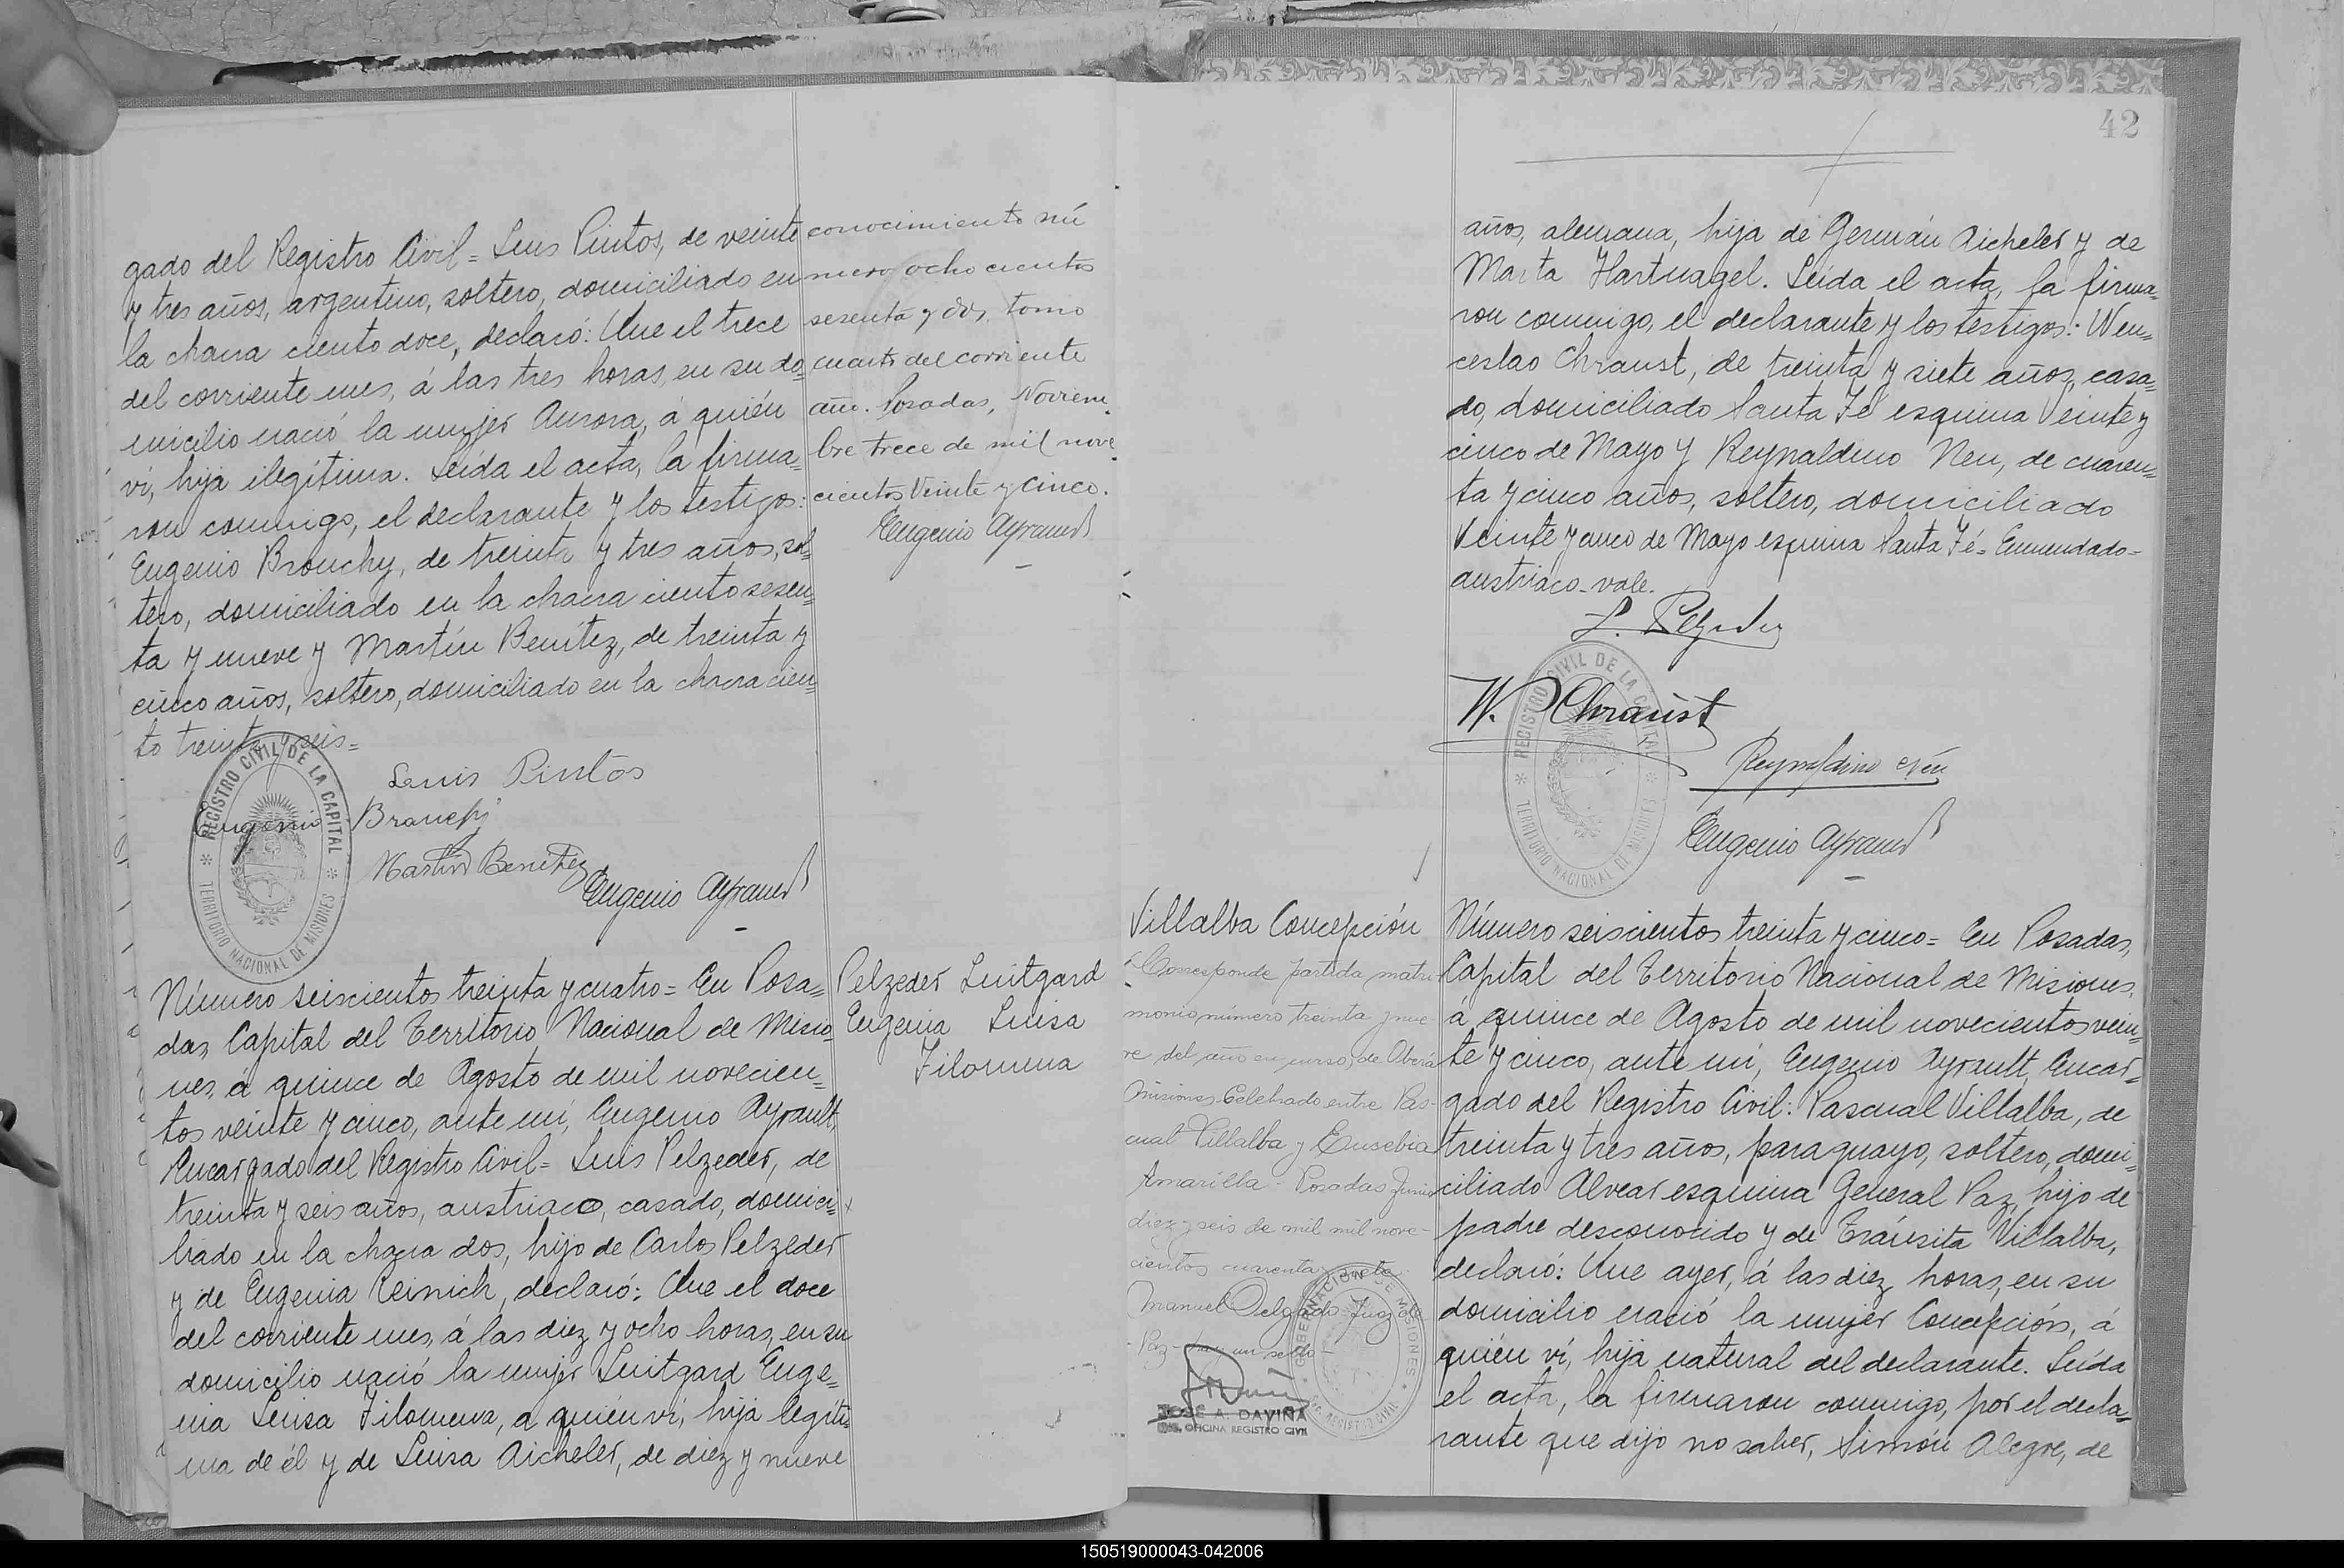 gado del Registro Civil = Luis Pintos, de veinte
y tres años, argentino, soltero, domiciliado en
la chacra ciento doce, declaró: Que el trece
del corriente mes, á las tres horas, en su do=
micilio nació la mujer Aurora, á quién
ví, hija ilegítima. Leída el acta, la firma=
ron conmigo, el declarante y los testigos:
Eugenio Brouchy, de treinta y tres años, sol=
tero, domiciliado en la chacra ciento sesen=
ta y nueve y Martín Benítez, de treinta y
cinco años, soltero, domiciliado en la chacra cien=
to treinta y seis=
conocimiento nú
mero ocho cientos
sesenta y dos, tomo
cuarto del corriente
año. Posadas, Noviem
bre trece de mil nove
cientos veinte y cinco.
Eugenio Ayrault
Luis Pintos
Eugenio Brouchy
Martin Benitez
Eugenio Ayrault
REGISTRO CIVIL DE LA CAPITAL
* TERRITORIO NACIONAL DE MISIONES *
Pelzeder Luitgard
Eugenia Luisa
Filomena
Número seiscientos treinta y cuatro = En Posa=
das, Capital del Territorio Nacional de Misio
nes, á quince de Agosto de mil novecien=
tos veinte y cinco, ante mí, Eugenio Ayrault,
Encargado del Registro Civil = Luis Pelzeder, de
treinta y seis años, austriaco, casado, domici=
liado en la chacra dos, hijo de Carlos Pelzeder
y de Eugenia Reinich, declaró: Que el doce
del corriente mes, á las diez y ocho horas, en su
domicilio nació la mujer Luitgard Euge=
nia Luisa Filomena, a quién ví, hija legíti=
ma de él y de Luisa Aicheler, de diez y nueve
42
años, alemana, hija de Germán Aicheler y de
Marta Hartnagel. Leída el acta, la firma=
ron conmigo, el declarante y los testigos: Wen=
ceslao Chraust, de treinta y siete años, casa=
do, domiciliado Santa Fé esquina Veinte y
cinco de Mayo y Reynaldino Neu, de cuaren=
ta y cinco años, soltero, domiciliado
Veinte y cinco de Mayo esquina Santa Fé = Enmendado=
austriaco-vale.
L. Pelzeder
W. Chraust
Reynaldino Neu
Eugenio Ayrault
REGISTRO CIVIL DE LA CAPITAL
* TERRITORIO NACIONAL DE MISIONES *
Villalba Concepción
Corresponde partida matri
monio número treinta y nue-
ve del año en curso, de Oberá
Misiones Celebrado entre Pas-
cual Villalba y Eusebia
Amarilla - Posadas Junio
diez y seis de mil mil nove-
cientos cuarenta y siete.
Manuel Delgado - Juez de
Paz - hay un sello -
JOSE A. DAVIÑA
OFICINA REGISTRO CIVIL
GOBERNACION DE MISIONES
REGISTRO CIVIL
Número seiscientos treinta y cinco = En Posadas,
Capital del Territorio Nacional de Misiones,
á quince de Agosto de mil novecientos vein
te y cinco, ante mí, Eugenio Ayrault, Encar=
gado del Registro Civil: Pascual Villalba, de
treinta y tres años, paraguayo, soltero, domi=
ciliado Alvear esquina General Paz, hijo de
padre desconocido y de Tránsita Villalba,
declaró: Que ayer, á las diez horas, en su
domicilio nació la mujer Concepción, á
quién ví, hija natural del declarante. Leída
el acta, la firmaron conmigo, por el decla=
rante que dijo no saber, Simón Alegre, de
150519000043-042006